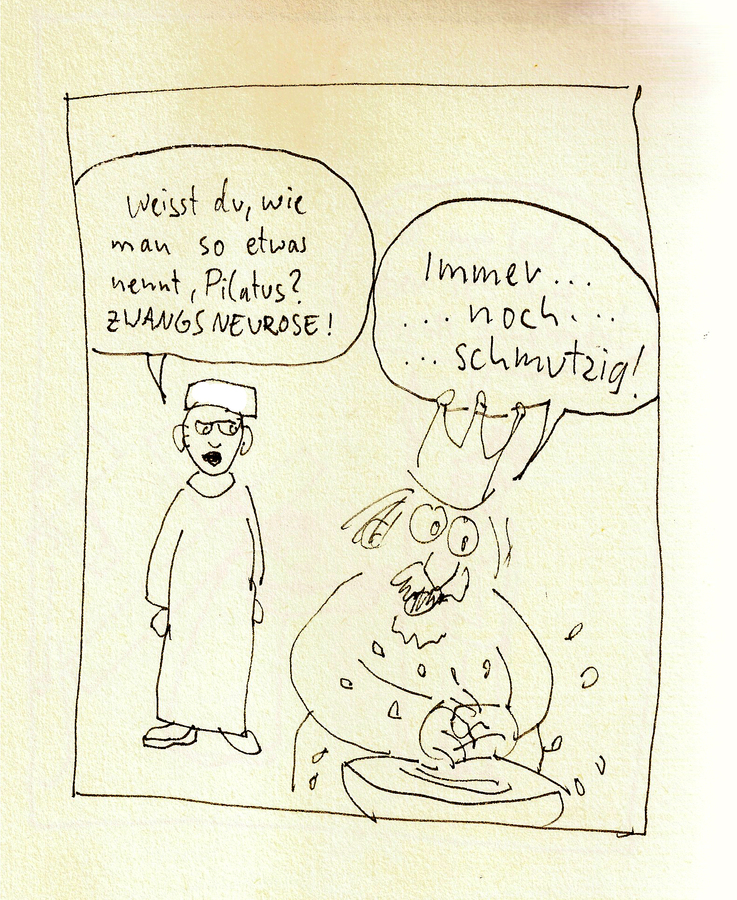 Weisst du, wie
man so etwas
nennt, Pilatus?
ZWANGSNEUROSE!
Immer...
...noch...
...schmutzig!